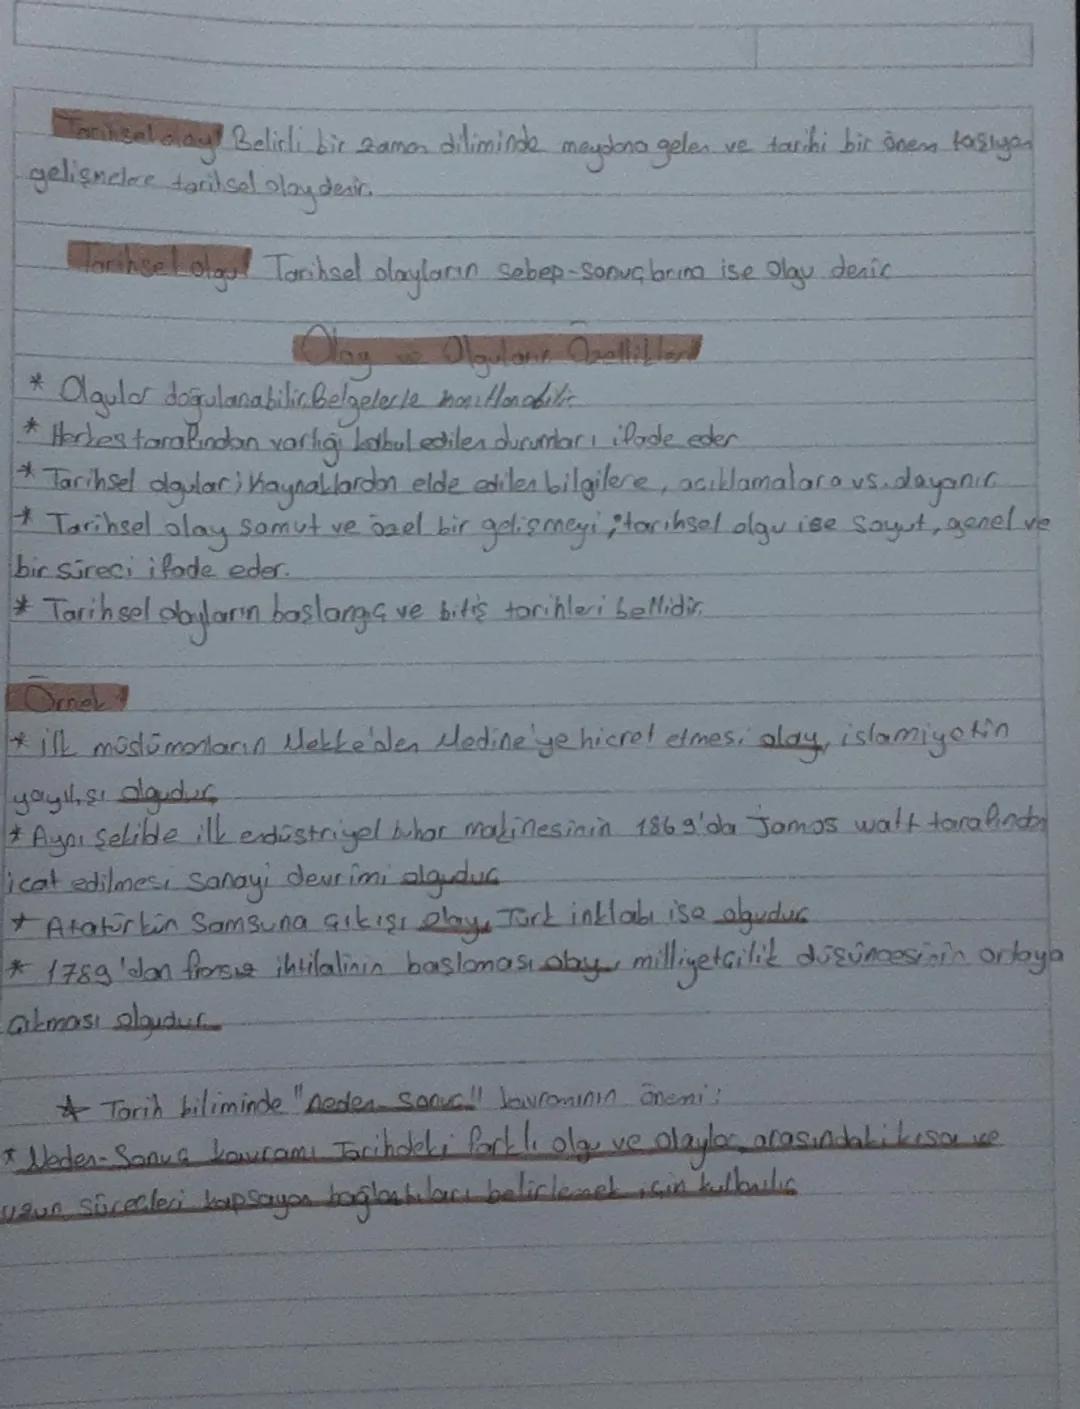 Tarihsel olay! Belirli bir zaman diliminde meydana gelen ve tarihi bir önem taşıyan
gelişmelere tarihsel olay denir.
Tarihsel olgu! Tarihsel olayların sebep-sonuçlarına ise olgu denir
Olay ve Olguların Özellikleri!
* Olgular doğulanabilir. Belgelerle kanıtlanabilir
* Herkes tarafından varlığı kabul edilen durumları ifade eder
* Tarihsel olgular; Kaynaklardan elde edilen bilgilere, açıklamalara vs. dayanır.
* Tarihsel olay somut ve özel bir gelişmeyi; tarihsel olgu ise soyut, genel ve
bir süreci ifade eder.
* Tarihsel olayların başlangıç ve bitiş tarihleri bellidir.
Örnek!
* ilk müslümanların Mekke'den Medine'ye hicret etmesi olay, islamiyetin
yayılışı olgudur
* Aynı şekilde ilk endüstriyel buhar makinesinin 1869'da James watt tarafından
icat edilmesi sanayi devrimi olgudur
* Atatürkün Samsuna çıkışı olay, Türk inklabı ise olgudur
* 1789'dan fransız ihtilalinin başlaması olay, milliyetçilik düşüncesinin ortaya
çıkması olgudur
* Tarih biliminde "neden sonuç" kavramının önemi:
* Neden-Sonuç kavramı Tarihdeki farklı olgu ve olaylar arasındaki kısa ve
uzun süreçleri kapsayan bağlantıları belirlemek için kullanılır